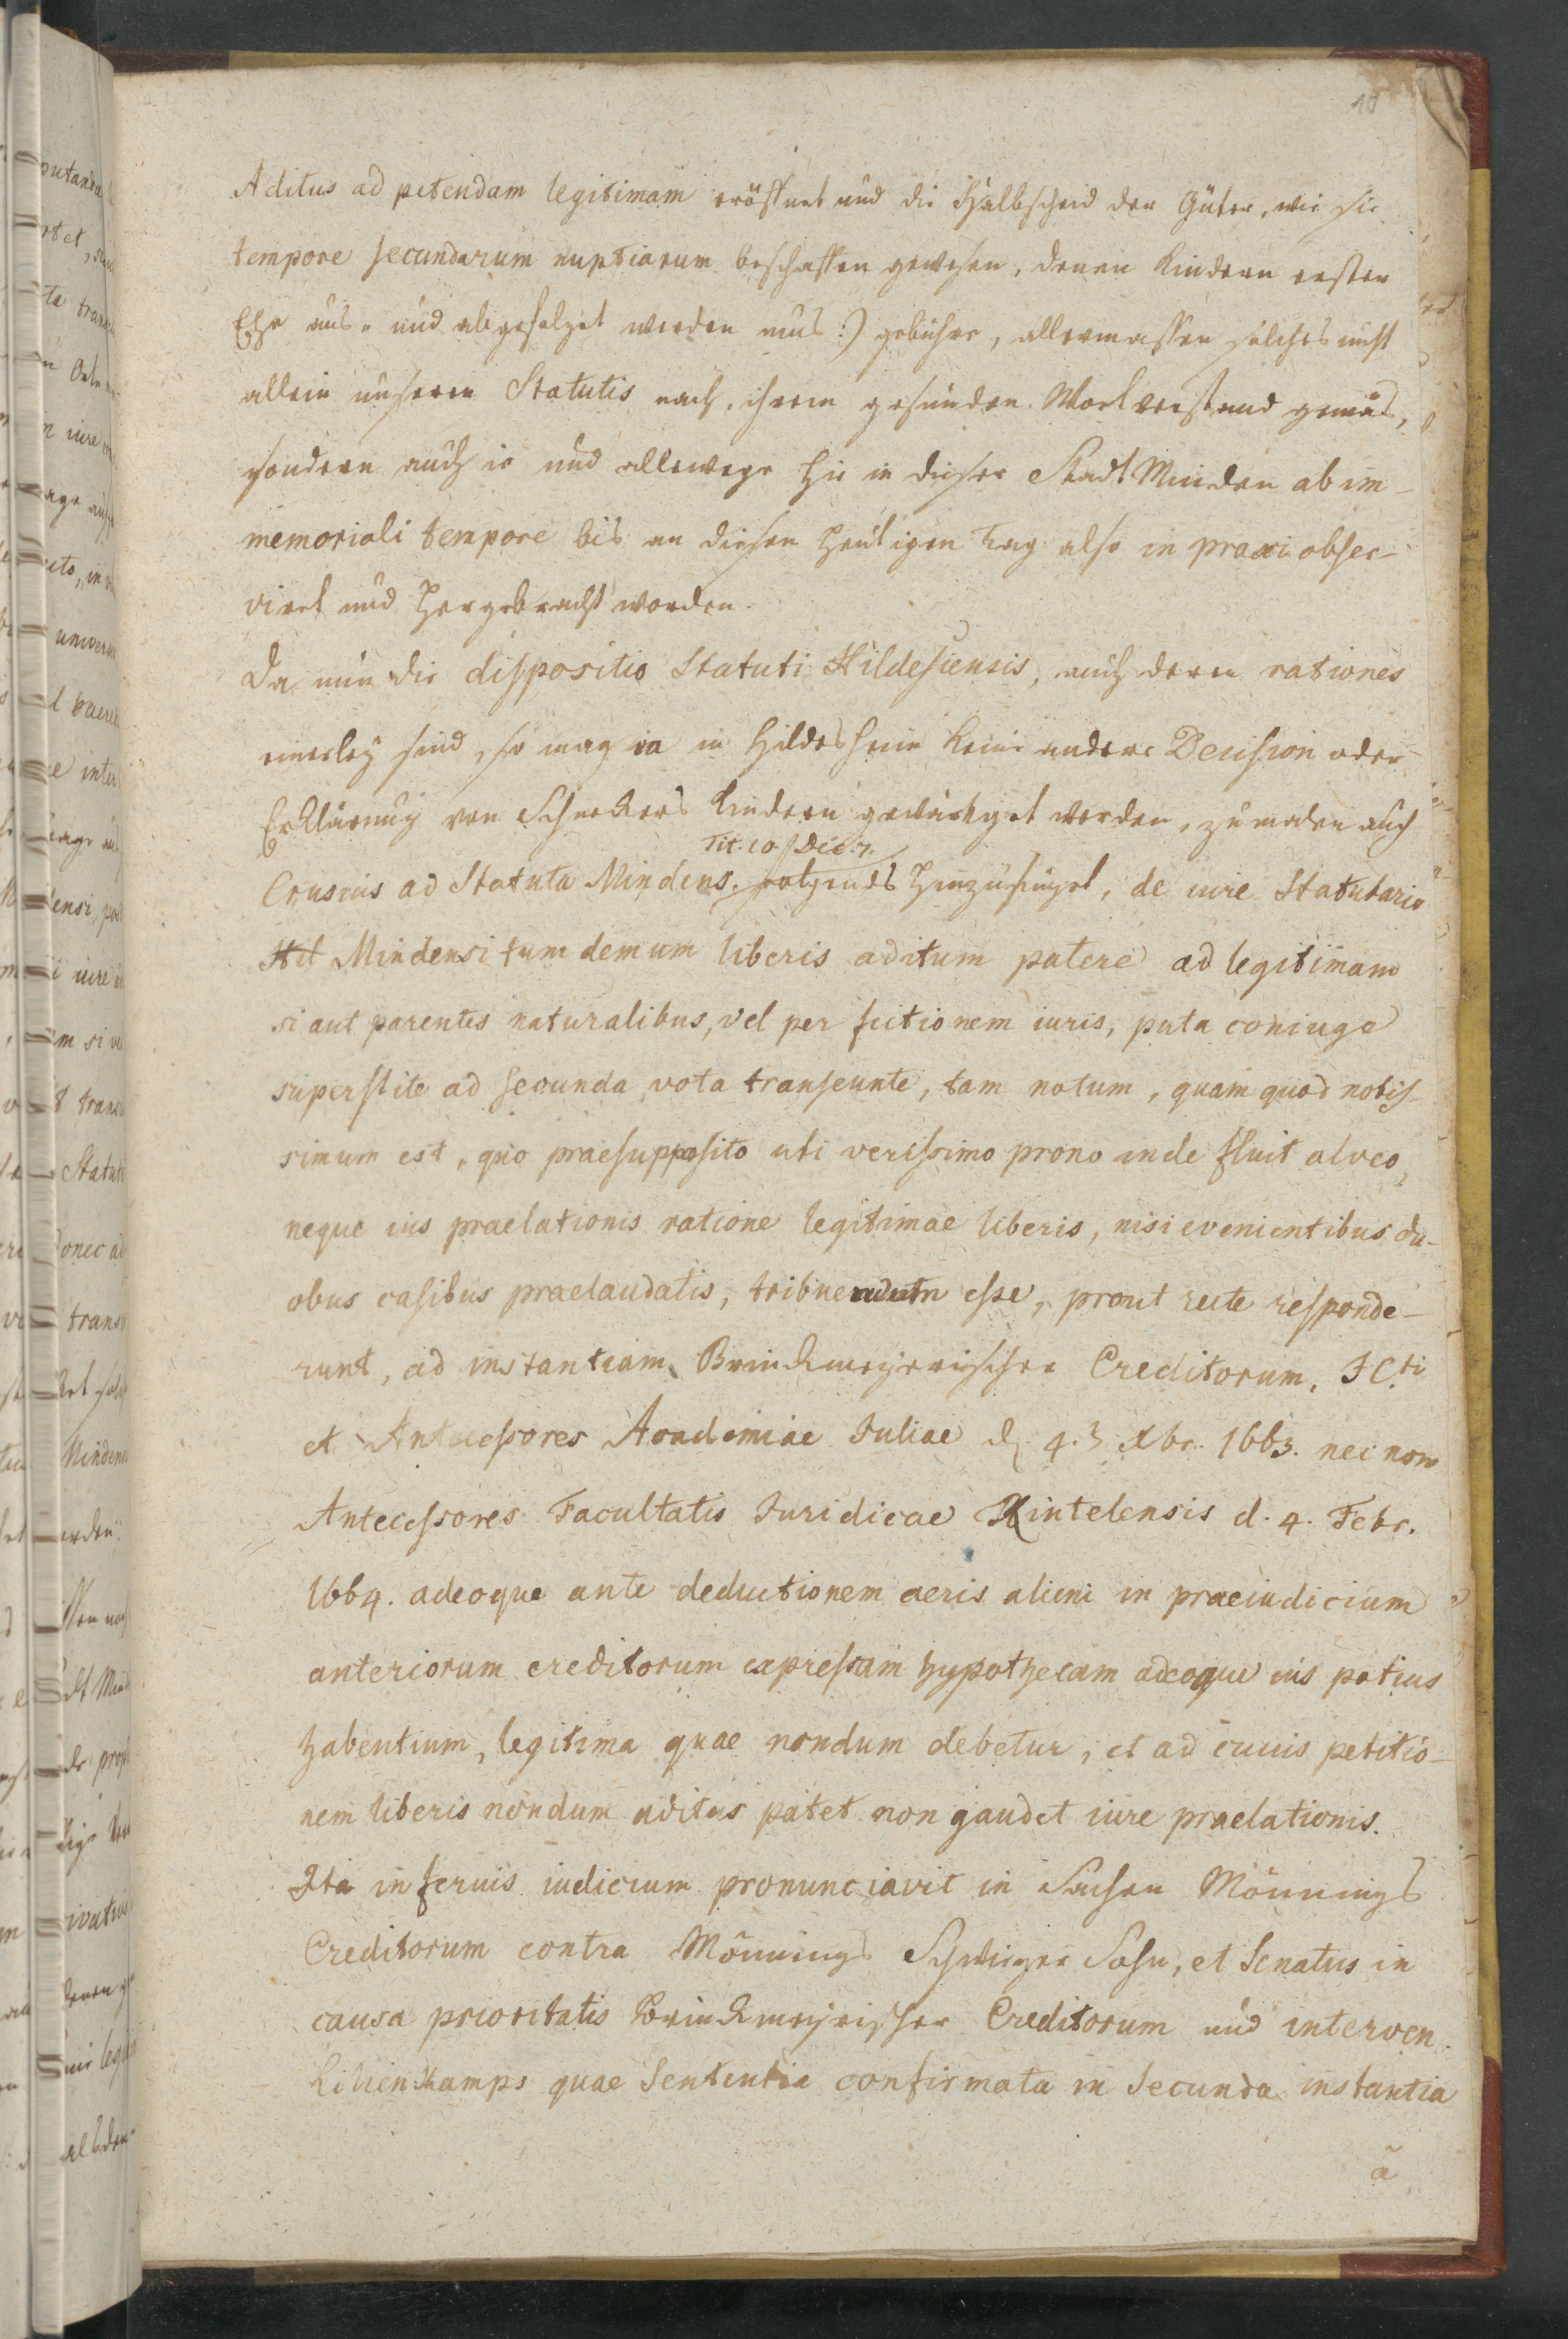 10
Aditus ad petendam legitimam eröffnet und die Halbscheid der Güter, wie sie
tempore secundarum nuptiarum beschaffen gewesen, denen Kindern erster
Ehe aus- und abgefolget werden mus:) gebühre, allermassen solches nicht
allein unseren Statutis nach, ihrem gesunden Wortverstand gemäs,
sondern auch ie und allewege hie in dieser Stadt Minden ab im-
memoriali tempore bis an diesen heutigen Tag also in praxi obser-
viret und hergebracht worden.
Da nun die dispositio Statuti Hildesiensis, auch deren rationes
einerley sind, so mag ia in Hildesheim keine andere Decision oder
Erklärung von Schnekers Kindern gewärtiget werden, zumalen auch
Tit. 10. Dec. 7.
Crusius ad Statuta Mindens. folgendes hinzufüget, de iure Statutario
Mindensi tum demum liberis aditum patere ad legitimam
si aut parentes naturalibus, vel per fictionem iuris, puta coniuge
superstite ad secunda vota transeunte, tam notum, quam quod notis-
simum est, quo praesupposito uti verissimo prono inde fluit alveo,
neque ius praelationis ratione legitimae liberis, nisi evenientibus du-
obus casibus praelaudatis, tribuendum esse, prout recte responde-
runt, ad instantiam Brinckmeyerischer Creditorum, ICti
et Antecessores Academiae Iuliae d. 4. Xbr. 1663. nec non
Antecessores Facultatis Iuridicae Rintelensis d. 4. Febr.
1664. adeoque ante deductionem aeris alieni in praeiudicium
anteriorum creditorum expressam hypothecam adeoque ius potius
habentium, legitima quae nondum debetur, et ad cuius petitio-
nem liberis nondum aditus patet non gaudet iure praelationis.
Ita inferius iudicium pronunciavit in Sachen Mönnings
Creditorum contra Mönnings Schwieger Sohn, et Senatus in
causa prioritatis Brinckmeyrischer Creditorum und interven.
Lilienkamps quae Sententia confirmata in Secunda instantia
a